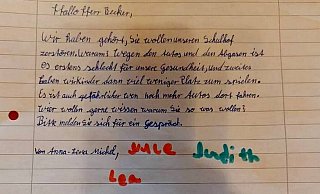 Hallo Herr Becker,
Wir haben gehört, Sie wollen unseren Schulhof
zerstören, warum? Wegen den Autos und den Abgasen ist
es erstens schlecht für unsere Gesundheit, und zweitens
haben wir kinder dann viel weniger Platz zum spielen.
Es ist auch gefährlicher wen noch mehr Autos dort fahren.
wir wollen gerne wissen warum Sie so was wollen?
Bitte melden Sie sich für ein Gespräch.
von Anna-Lena, Michel, Jule Judith
Lea